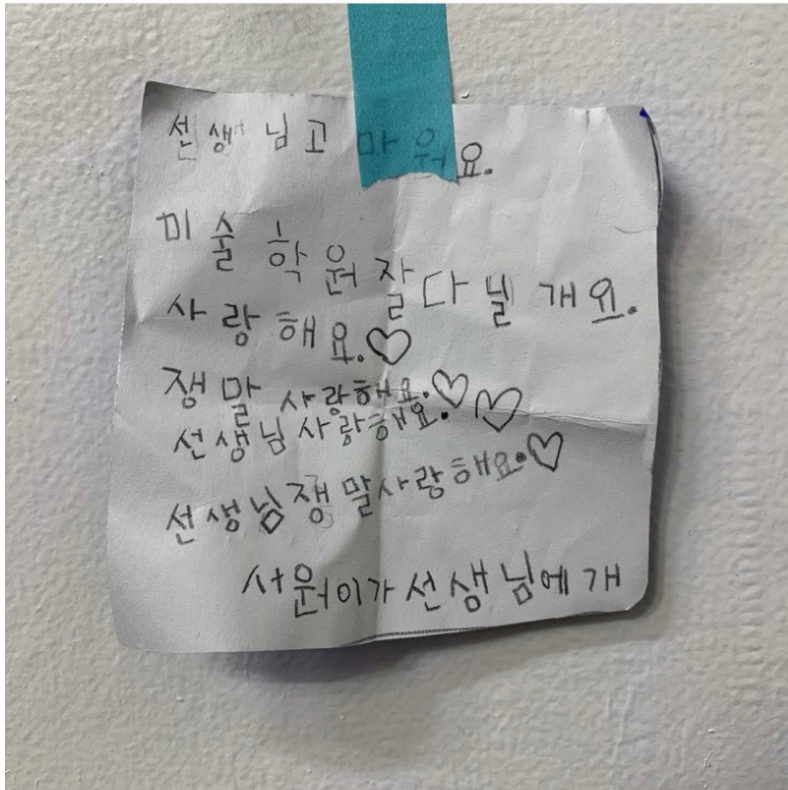 선생님고마워요.
미술학원잘다닐개요.
사랑해요.♡
쟁말 사랑해요.♡
선생님사랑해요.♡
선생님쟁말사랑해요.♡
사원이가선생님에개